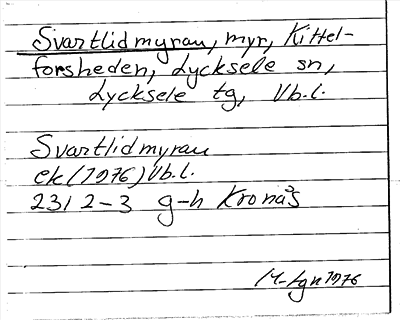 Svartlidmyran, myr, Kittel-
forsheden, Lycksele sn,
Lycksele tg, Vb.l.
Svartlidmyran
ek (1976) Vb.l.
231 2-3 g-h Kronås
1976